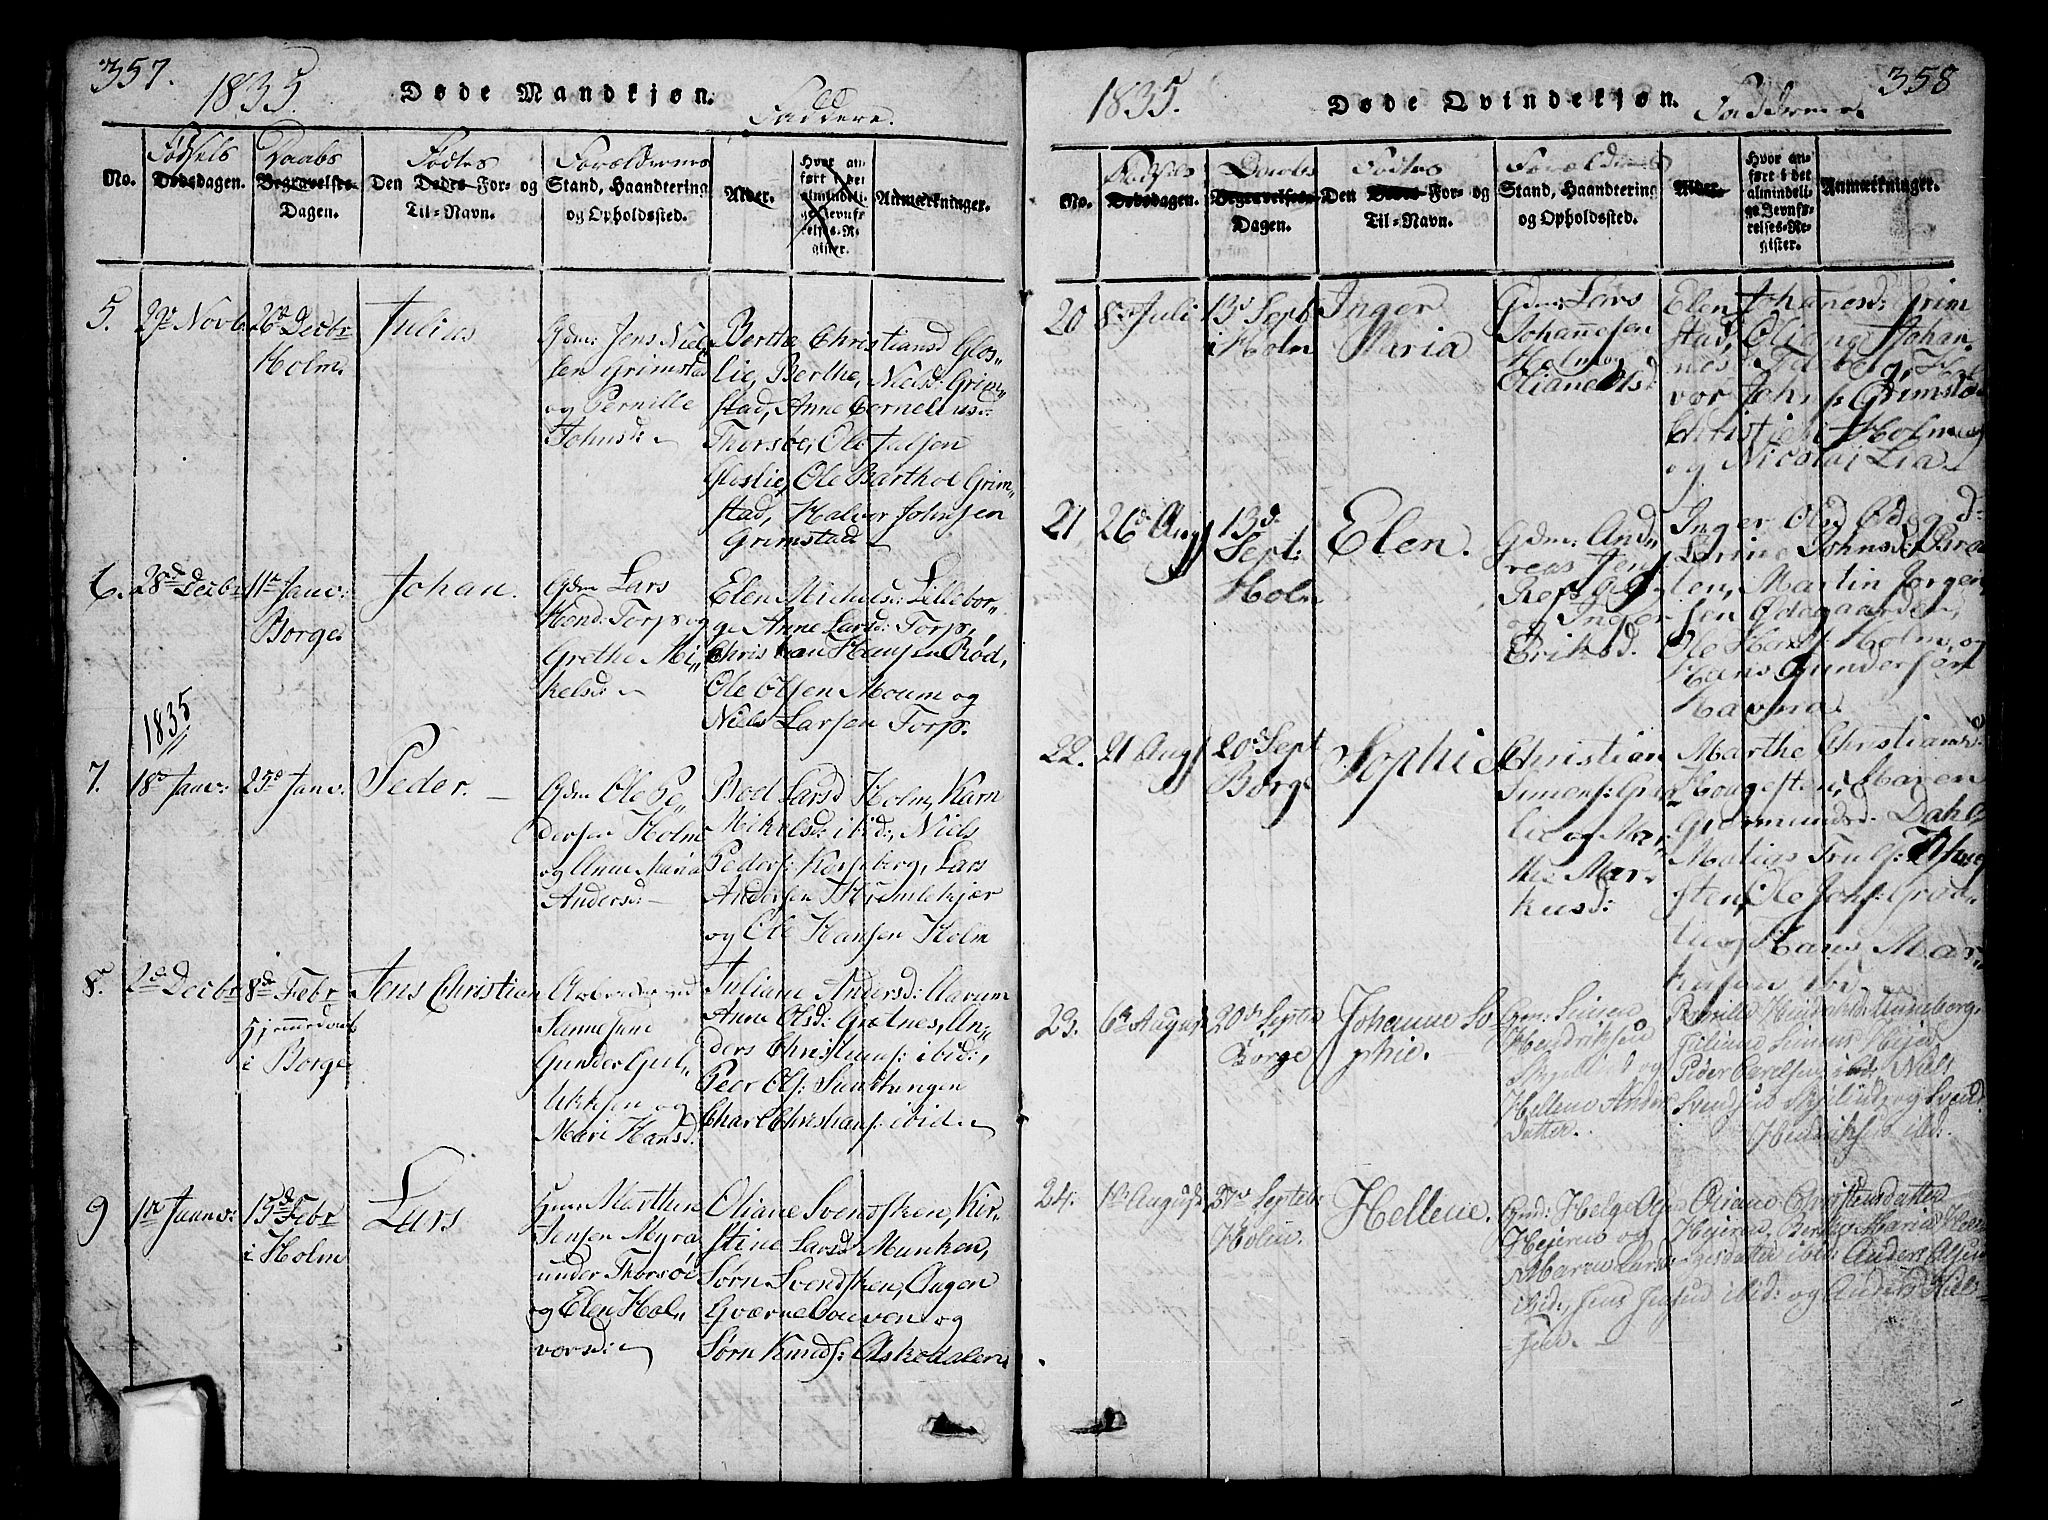 357.
1835.
Døde Mandkjøn.
Faddere.
No.
Fødsels
Dødsdagen.
Daabs
Begravelses-
Dagen.
Fødtes
Den Dødes For- og
Til-Navn.
Forældrernes
Stand, Haandtering
og Opholdssted.
Alder.
Hvor an-
ført i det
almindeli-
ge Jevnfø-
relses-Re-
gister.
Anmærkninger.
5.
29d Novb
26d Decbr
Holm.
Julius
Gdm: Jens Niel-
sen Grimstad
og Pernille
Johnsd:
Berthe Christiansd Glos-
lie, Berthe, Nielsd: Grim-
stad, Anne Corneliusd:
Thorsøe, Ole Julsen
Gloslie, Ole Barthol Grim-
stad, Halvor Johnsen
Grimstad
6.
28d Decbr
11te Janv:
Borge
Johan.
Gdm Lars
Hend: Torp og
Grethe Mi-
kelsd
Elen Michelsd: Lillebor-
ge Anne Larsd: Torp,
Christian Hansen Rød,
Ole Olsen Moum og
Niels Larsen Torp.
1835
7.
18d Janv:
25d Janv:
Peder.
Gdm Ole Pe-
dersen Holm
og Anne Maria
Andersd:
Boel Larsd Holm, Karn
Mikelsd: ibid:, Niels
Peders: Kirseberg, Lars
Andersen Humlekjær
og Ole Hansen Holm
8.
2d Decbr
8d Febr
Hjemmedøbt
i Borge
Jens Christian
Arbeider ved
Sannesund
Gunder Gul-
likksen og
Mari Hansd:
Juliane Andersd: Navum
Anne Olsd: Grætnes, An-
ders Christians: ibid:,
Peer Ols: Sandtangen
Charl Christians: ibid.
9
1te Janv:
15d Febr
i Holm
Lars
Huusm Marthin
Jensen Myra
under Thorsøe
og Elen Hal-
vorsd:
Oliane Svendsken, Kir-
stine Larsd: Munken,
Sørn Svendsken, Aagen
Gværne Couven og
Sørn Knuds: Askedalen
358
1835.
Døde Qvindekjøn.
Fadderne.
No.
Fødsels
Dødsdagen.
Daabs
Begravelses-
Dagen.
Fødtes
Den Dødes For- og
Til-Navn.
Forældrenes
Stand, Haandtering
og Opholdssted.
Alder.
Hvor an-
ført i det
almindeli-
ge Jevnfø-
relses-Re-
gister.
Anmærkninger.
20
8de Juli
13d Sept
i Holm
Inger
Maria
Gdm: Lars
Johannesen
Holm og
Oliane Olsd
Elen Johanesd: Grim
stad, Oliana Johan-
nesd:
vor Johs: Grimstad
Christ: Holm
og Nicolai Lia
21
26d Augs
13d
Sept:
Holm
Elen.
Gdm: And-
reas Jens:
og Inger
Eriksd.
Inger Olsd Ødeg d:
Trine Johnsd: Bra
ten, Martin Jørgen-
sen Ødegaarden,
Ole Hans: Holm, og
Hans Gundersen
Havna.
22.
21 Augs
20d Sept
Borge
Sophie
Christian
Simons: Græ
lie og Mar-
the Mar-
kusd:
Marthe Christiansd:
Hougesten, Maren
Giermundsd: Dahl
Mathias Truls: Houg
sten, Ole Jons: Græ-
lie og Hans Mar-
kusen ibid
23.
6te August
20d Septbr
Borge
Johanne So-
phie.
Gdm: Simen
Hendriksen
Skjelind og
Hellene Anders
datter.
Pernille Hendriksd: Lundeborg
Juliane Simens Heien
Peder Carelsen ibid, Niels
Svendsen Skjelind, og Svend
Hendriksen ibid.
24.
1te August
27d Septbr
Holm.
Hellene.
Gmd: Helge Ols
Heieren og
Maren Larsd
ibid:
Oliane Christensdatter
Heieren, Berthe Maria Hel-
gesdatter ibid: Anders Olsen
ibid:, Jens Jensen ibid: og Anders Niel-
sen.